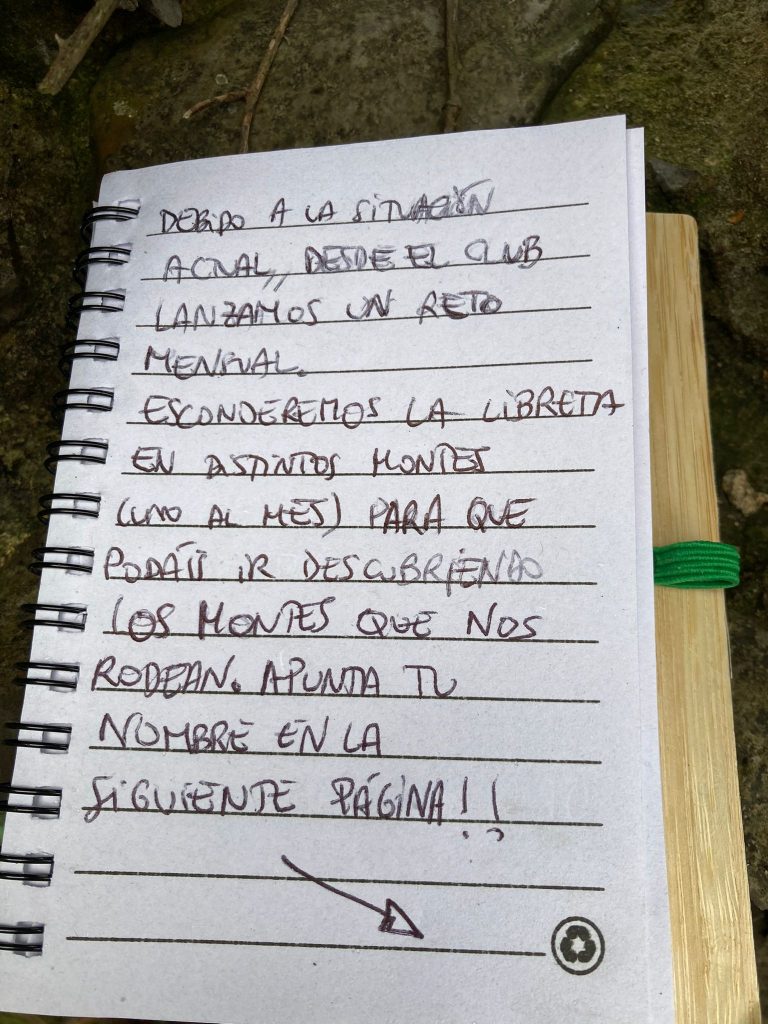 DEBIDO A LA SITUACIÓN
ACTUAL, DESDE EL CLUB
LANZAMOS UN RETO
MENSUAL.
ESCONDEREMOS LA LIBRETA
EN DISTINTOS MONTES
(UNO AL MES) PARA QUE
PODÁIS IR DESCUBRIENDO
LOS MONTES QUE NOS
RODEAN. APUNTA TU
NOMBRE EN LA
SIGUIENTE PÁGINA!!